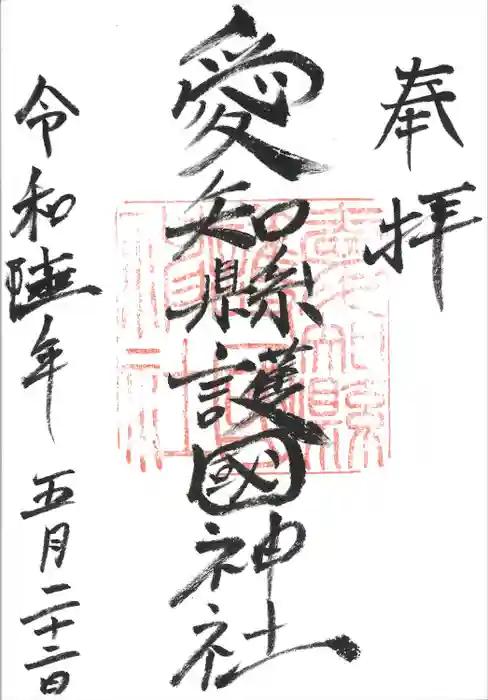 奉拝
愛知縣護國神社
令和陸年五月二十二日